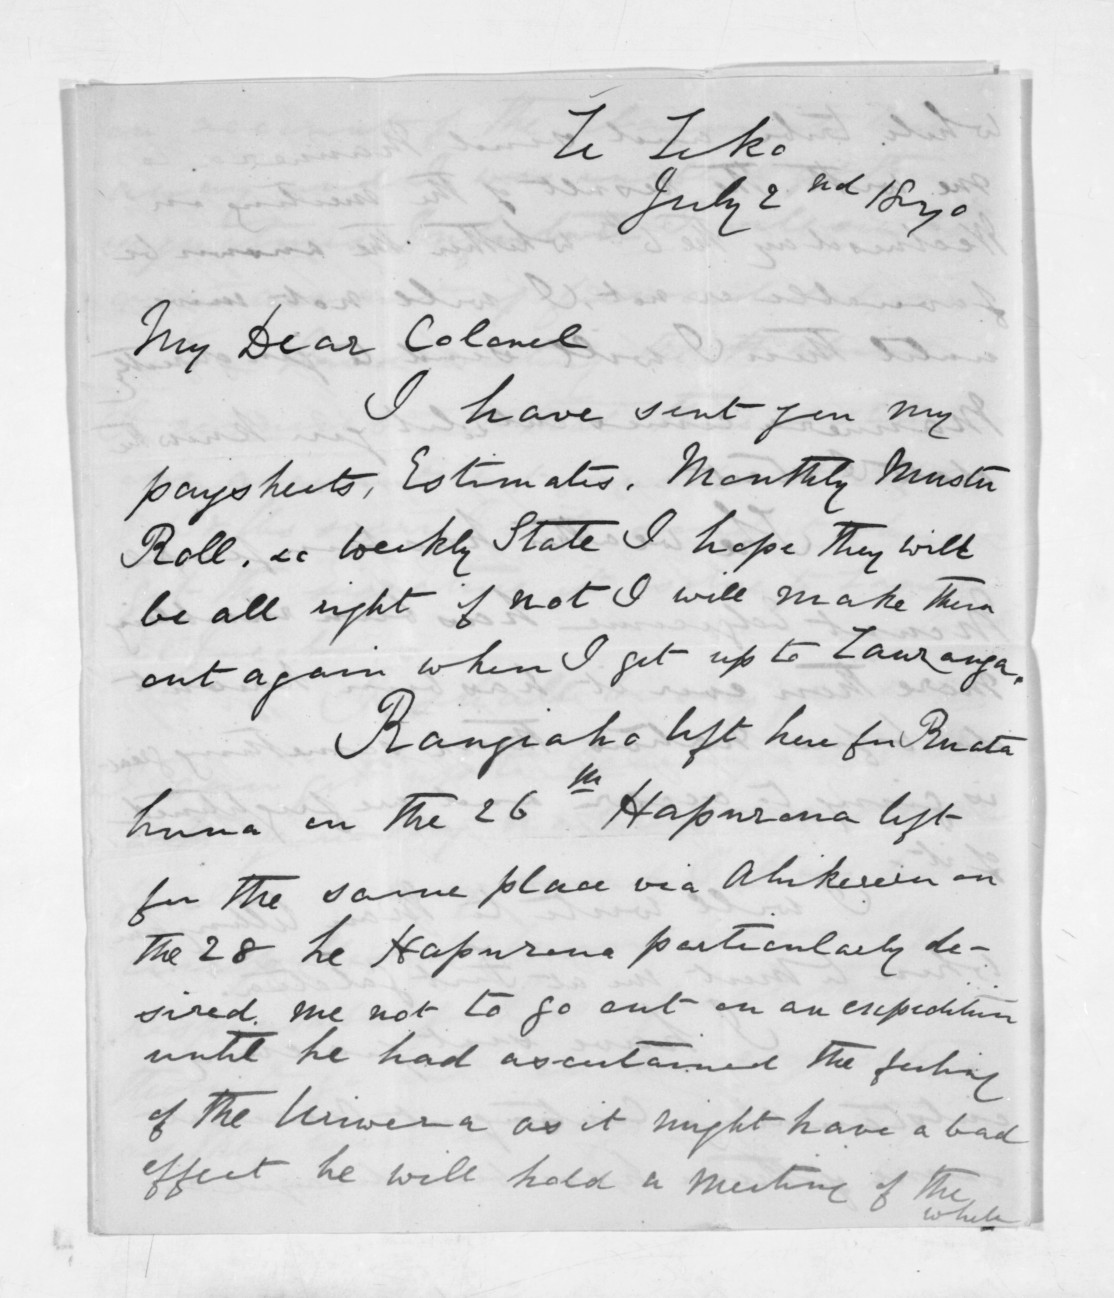 Te Teko
July 2nd 1870
My Dear Colonel
I have sent you my
paysheets, Estimates. Monthly Muster
Roll. &c Weekly State I hope they will
be all right if not I will make them
out again when I get up to Tauranga.
Rangiaho left here for Ruata
huna on the 26th Hapurona left
for the same place via Ahikereru on
the 28 he Hapurona particularly de-
sired me not to go out on an expedition
until he had ascertained the feeling
of the Uriwera as it might have a bad
effect he will hold a meeting of the
whole